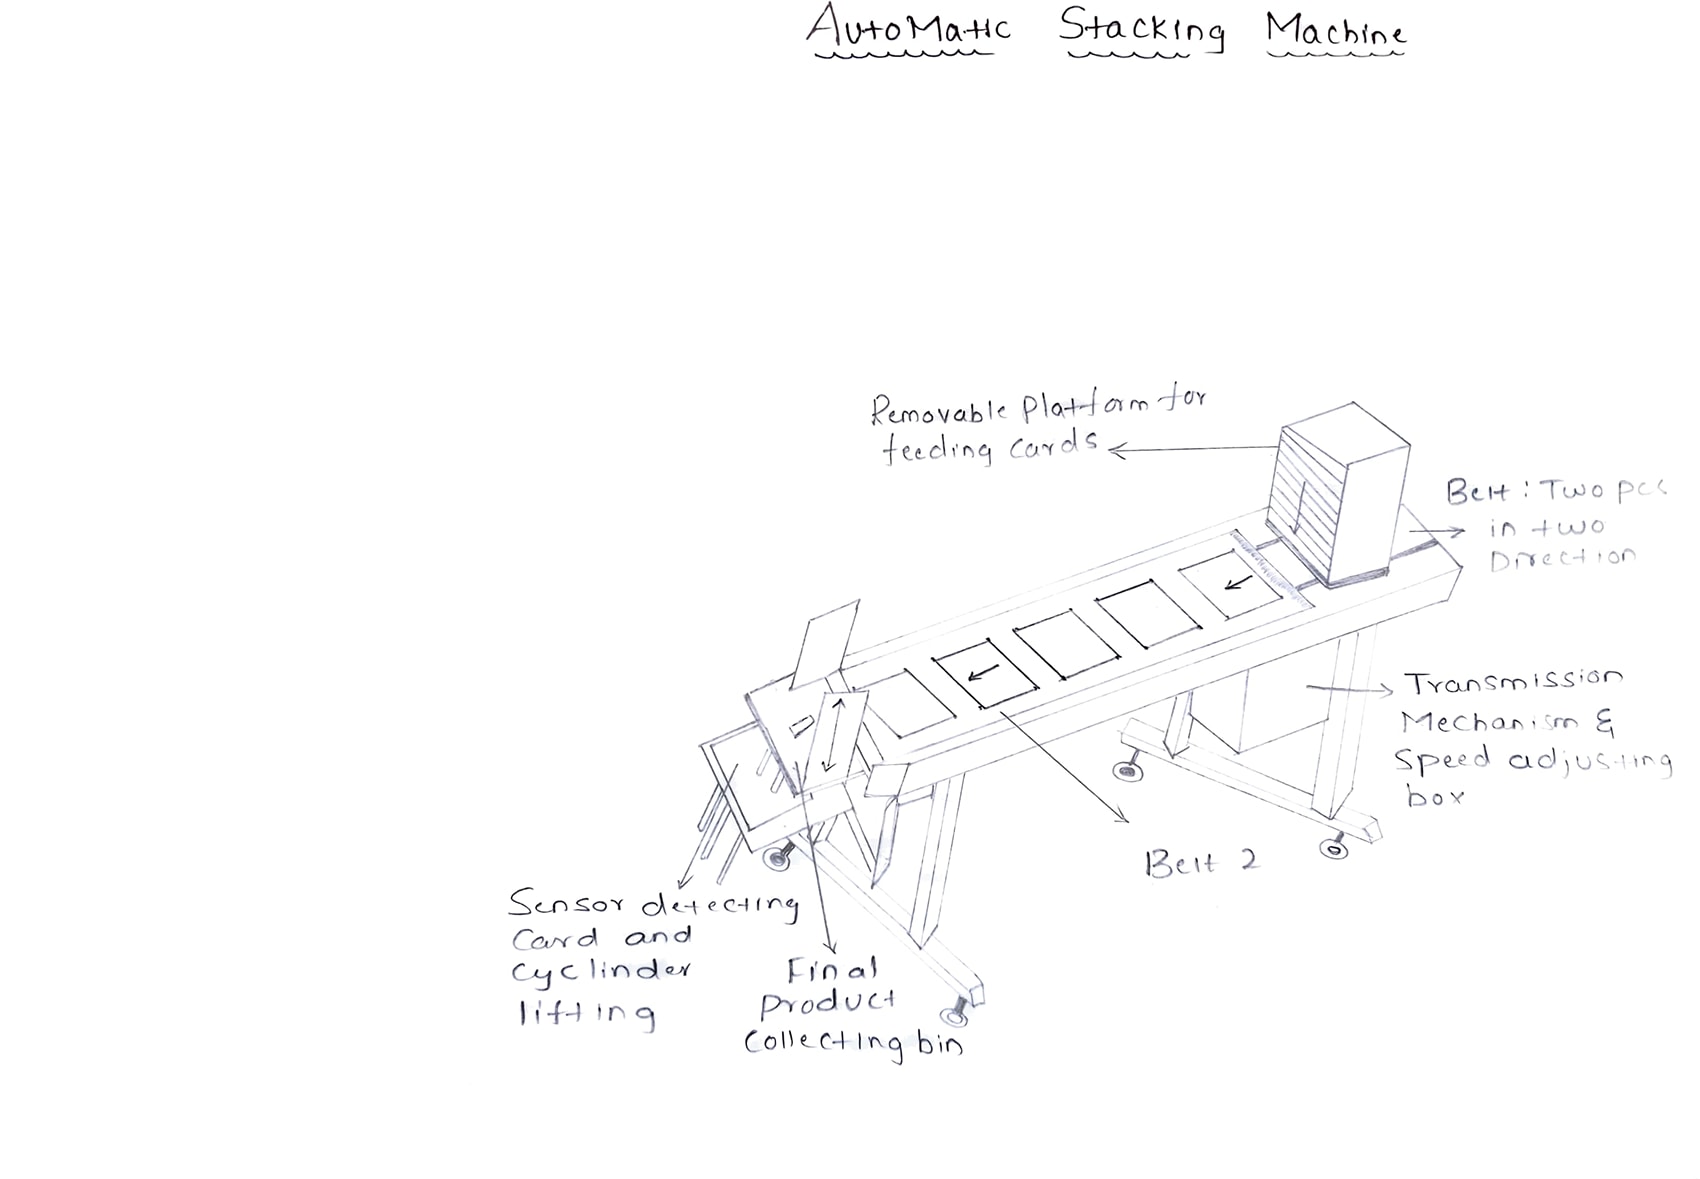 AutoMatic Stacking Machine
Removable Platform for
feeding cards
Belt : Two pcs
in two
Direction
Transmission
Mechanism &
Speed adjusting
box
Belt 2
Sensor detecting
Card and
cyclinder
lifting
Final
product
collecting bin